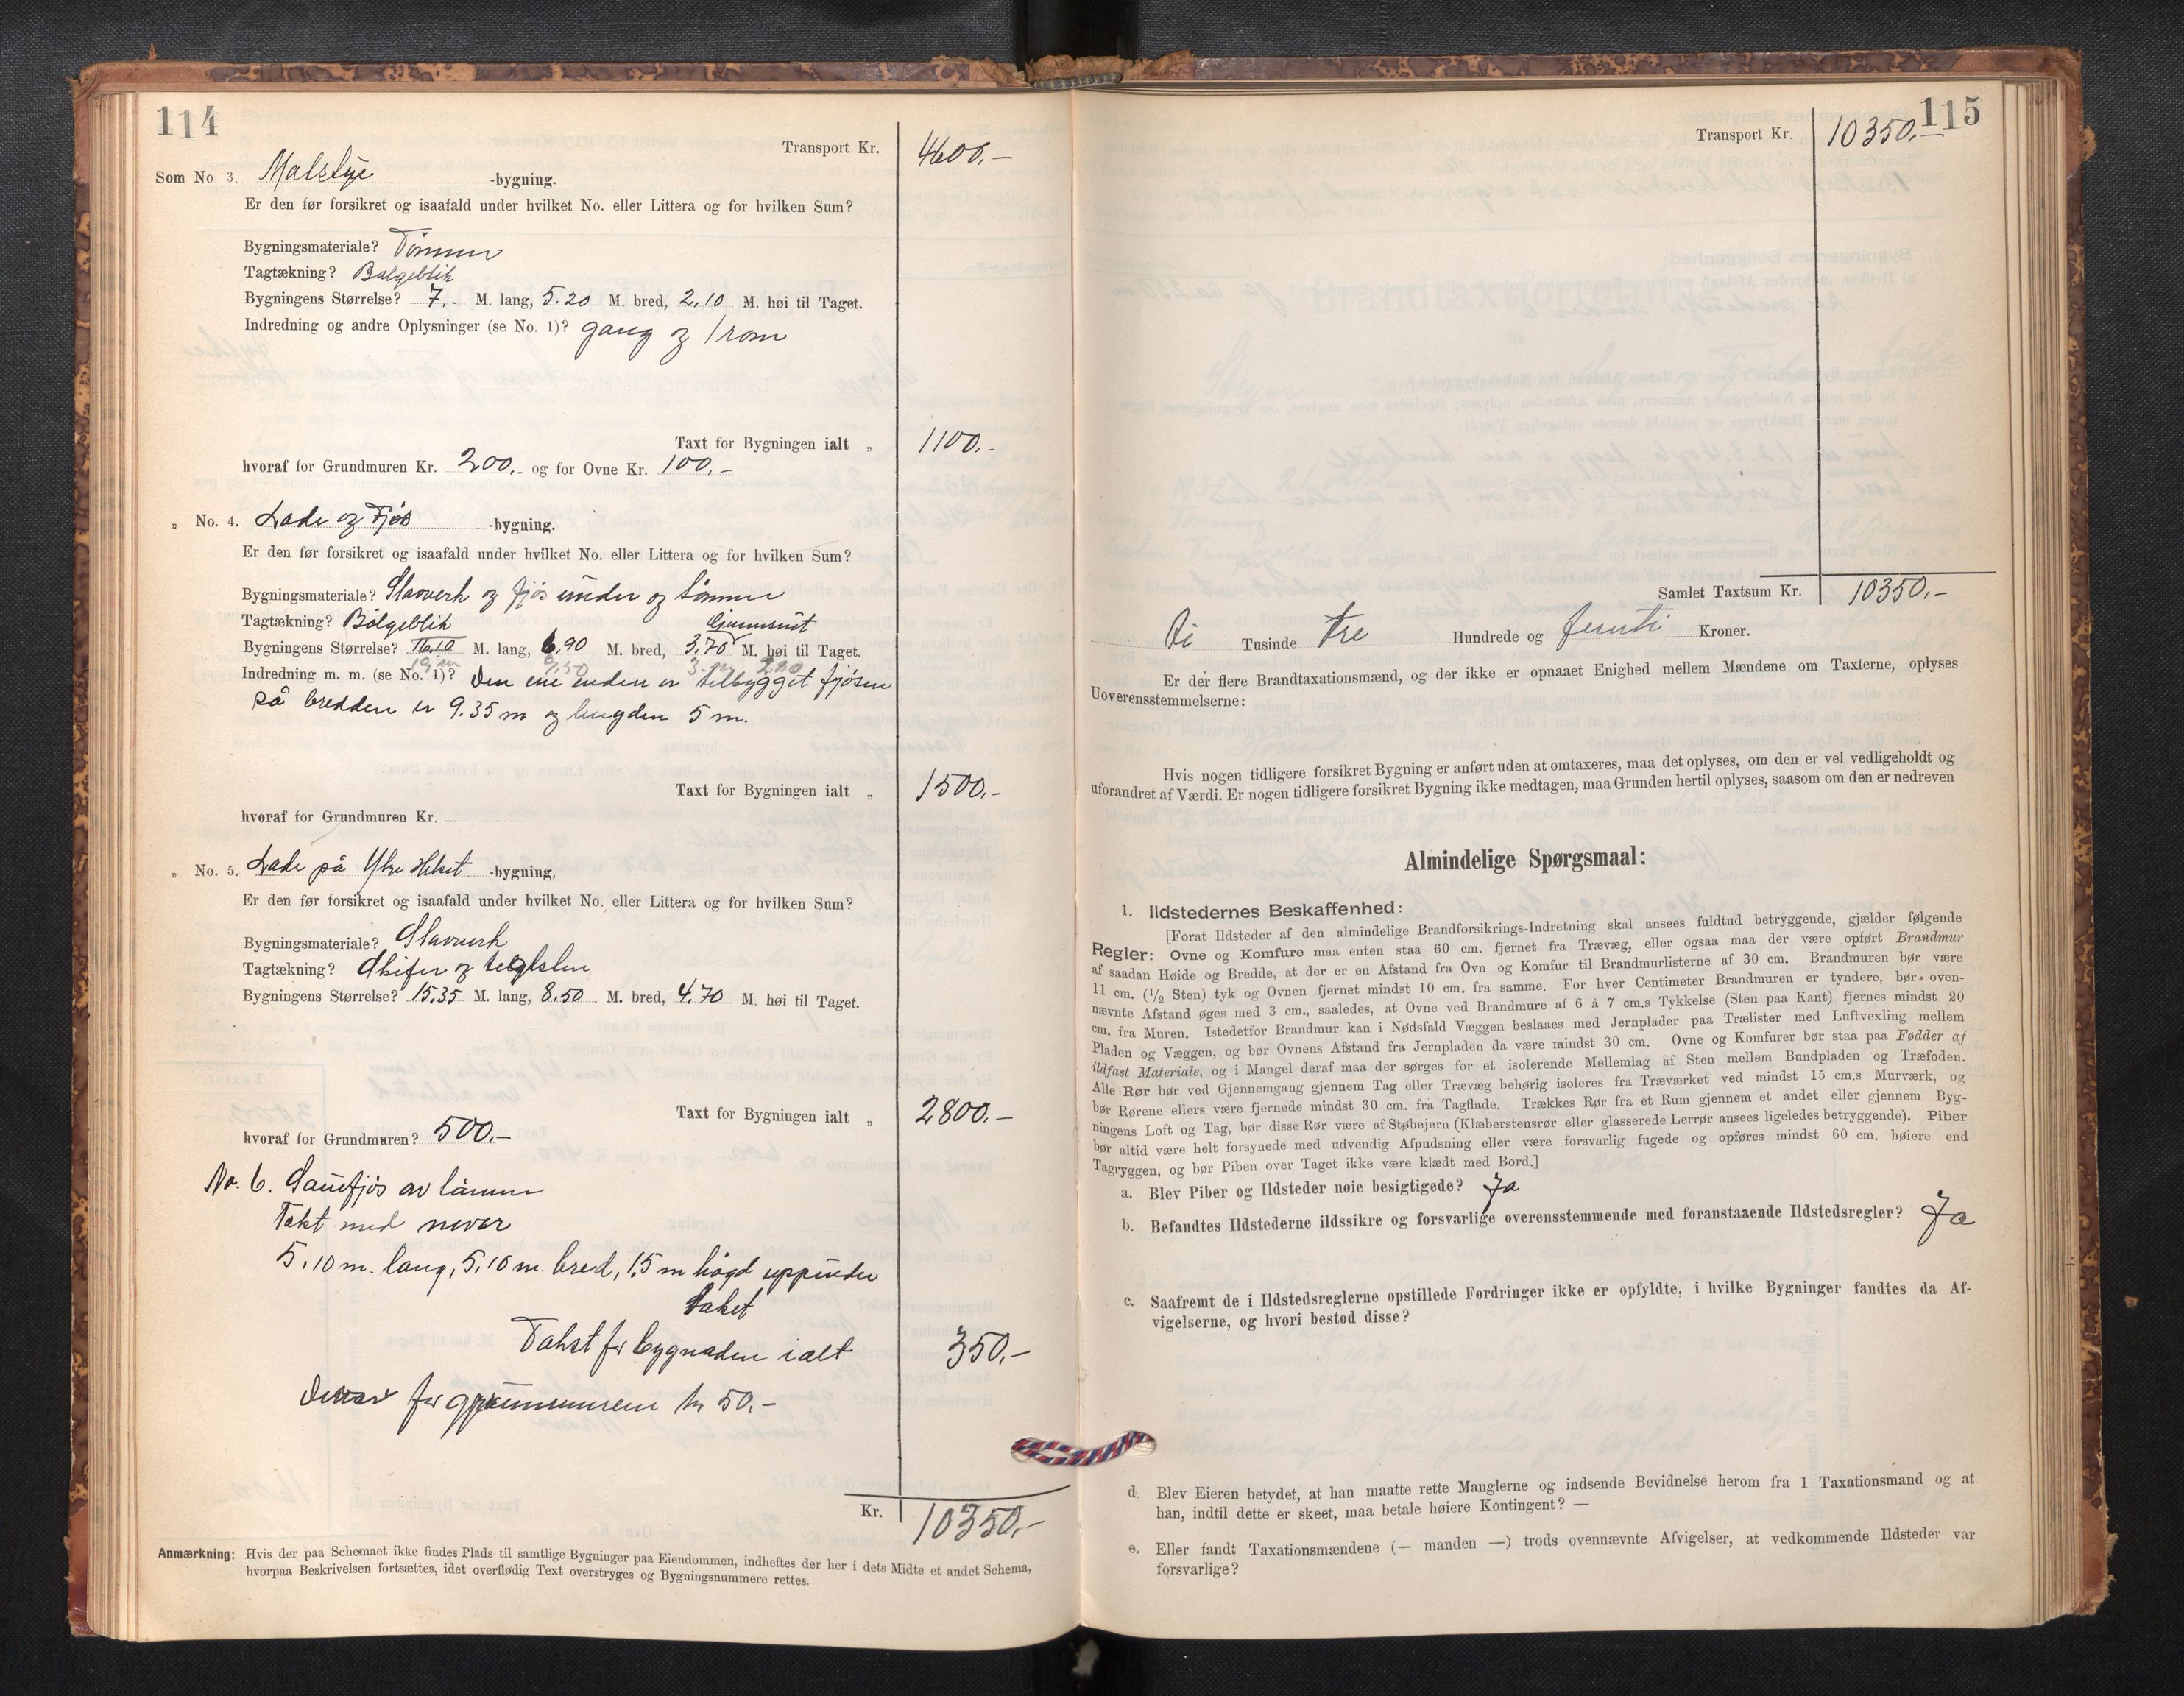 114
Transport Kr. 4600.-
Som No 3. Matstye -bygning.
Er den før forsikret og isaafald under hvilket No. eller Littera og for hvilken Sum?
Bygningsmateriale? Tømmer
Tagtækning? Bølgeblik
Bygningens Størrelse? 7.- M. lang, 5.20 M. bred, 2.10 M. høi til Taget.
Indredning og andre Oplysninger (se No. 1)? gang og 1 rom
Taxt for Bygningen ialt „ 1100.-
hvoraf for Grundmuren Kr. 200.- og for Ovne Kr. 100.-
„ No. 4. Lade og Fjøs -bygning.
Er den før forsikret og isaafald under hvilket No. eller Littera og for hvilken Sum?
Bygningsmateriale? Stavverk og fjøs under og tømmer
Tagtækning? Bølgeblik
Bygningens Størrelse? 16.10 M. lang, 6.90 M. bred, 3.70 M. høi til Taget.
Indredning m. m. (se No. 1)? Den ene enden er tilbygget fjøsen
så bredden er 9.35 m og lengden 5 m.
Taxt for Bygningen ialt „ 1500.-
hvoraf for Grundmuren Kr.
„ No. 5. Lade på Ytre Helset -bygning,
Er den før forsikret og isaafald under hvilket No. eller Littera og for hvilken Sum?
Bygningsmateriale? Stavverk
Tagtækning? Skifer og teglsten
Bygningens Størrelse? 15.35 M. lang, 8.50 M. bred, 4.70 M. høi til Taget.
Taxt for Bygningen ialt „ 2800.-
hvoraf for Grundmuren? 500.-
No. 6. Sauefjøs av tømmer
Tekt med never
5.10 m. lang, 5.10 m. bred, 1.5 m høgd uppunder
taket
Takst for bygnaden ialt 350.-
Derav for grunnmuren kr 50.-
Kr. 10350.-
Anmærkning: Hvis der paa Schemaet ikke findes Plads til samtlige Bygninger paa Eiendommen, indheftes der her i dets Midte et andet Schema,
hvorpaa Beskrivelsen fortsættes, idet overflødig Text overstryges og Bygningsnummere rettes.
115
Transport Kr. 10350.-
Samlet Taxtsum Kr. 10350.-
Ti Tusinde tre Hundrede og femti Kroner.
Er der flere Brandtaxationsmænd, og der ikke er opnaaet Enighed mellem Mændene om Taxterne, oplyses
Uoverensstemmelserne:
Hvis nogen tidligere forsikret Bygning er anført uden at omtaxeres, maa det oplyses, om den er vel vedligeholdt og
uforandret af Værdi. Er nogen tidligere forsikret Bygning ikke medtagen, maa Grunden hertil oplyses, saasom om den er nedreven
Almindelige Spørgsmaal:
1. Ildstedernes Beskaffenhed:
[Forat Ildsteder af den almindelige Brandforsikrings-Indretning skal ansees fuldtud betryggende, gjælder følgende
Regler: Ovne og Komfure maa enten staa 60 cm. fjernet fra Trævæg, eller ogsaa maa der være opført Brandmur
af saadan Høide og Bredde, at der er en Afstand fra Ovn og Komfur til Brandmurlisterne af 30 cm. Brandmuren bør være
11 cm. (1/2 Sten) tyk og Ovnen fjernet mindst 10 cm. fra samme. For hver Centimeter Brandmuren er tyndere, bør oven-
nævnte Afstand øges med 3 cm., saaledes, at Ovne ved Brandmure af 6 à 7 cm.s Tykkelse (Sten paa Kant) fjernes mindst 20
cm. fra Muren. Istedetfor Brandmur kan i Nødsfald Væggen beslaaes med Jernplader paa Trælister med Luftvexling mellem
Pladen og Væggen, og bør Ovnens Afstand fra Jernpladen da være mindst 30 cm. Ovne og Komfurer bør staa paa Fødder af
ildfast Materiale, og i Mangel deraf maa der sørges for et isolerende Mellemlag af Sten mellem Bundpladen og Træfoden.
Alle Rør bør ved Gjennemgang gjennem Tag eller Trævæg behørig isoleres fra Træværket ved mindst 15 cm.s Murværk, og
bør Rørene ellers være fjernede mindst 30 cm. fra Tagflade. Trækkes Rør fra et Rum gjennem et andet eller gjennem Byg-
ningens Loft og Tag, bør disse Rør være af Støbejern (Klæberstensrør eller glasserede Lerrør ansees ligeledes betryggende). Piber
bør altid være helt forsynede med udvendig Afpudsning eller være forsvarlig fugede og opføres mindst 60 cm. høiere end
Tagryggen, og bør Piben over Taget ikke være klædt med Bord.]
a. Blev Piber og Ildsteder nøie besigtigede? Ja
b. Befandtes Ildstederne ildssikre og forsvarlige overensstemmende med foranstaaende Ildstedsregler? Ja
c. Saafremt de i Ildstedsreglerne opstillede Fordringer ikke er opfyldte, i hvilke Bygninger fandtes da Af-
vigelserne, og hvori bestod disse?
d. Blev Eieren betydet, at han maatte rette Manglerne og indsende Bevidnelse herom fra 1 Taxationsmand og at
han, indtil dette er skeet, maa betale høiere Kontingent? —
e. Eller fandt Taxationsmændene (— manden —) trods ovennævnte Afvigelser, at vedkommende Ildsteder var
forsvarlige?